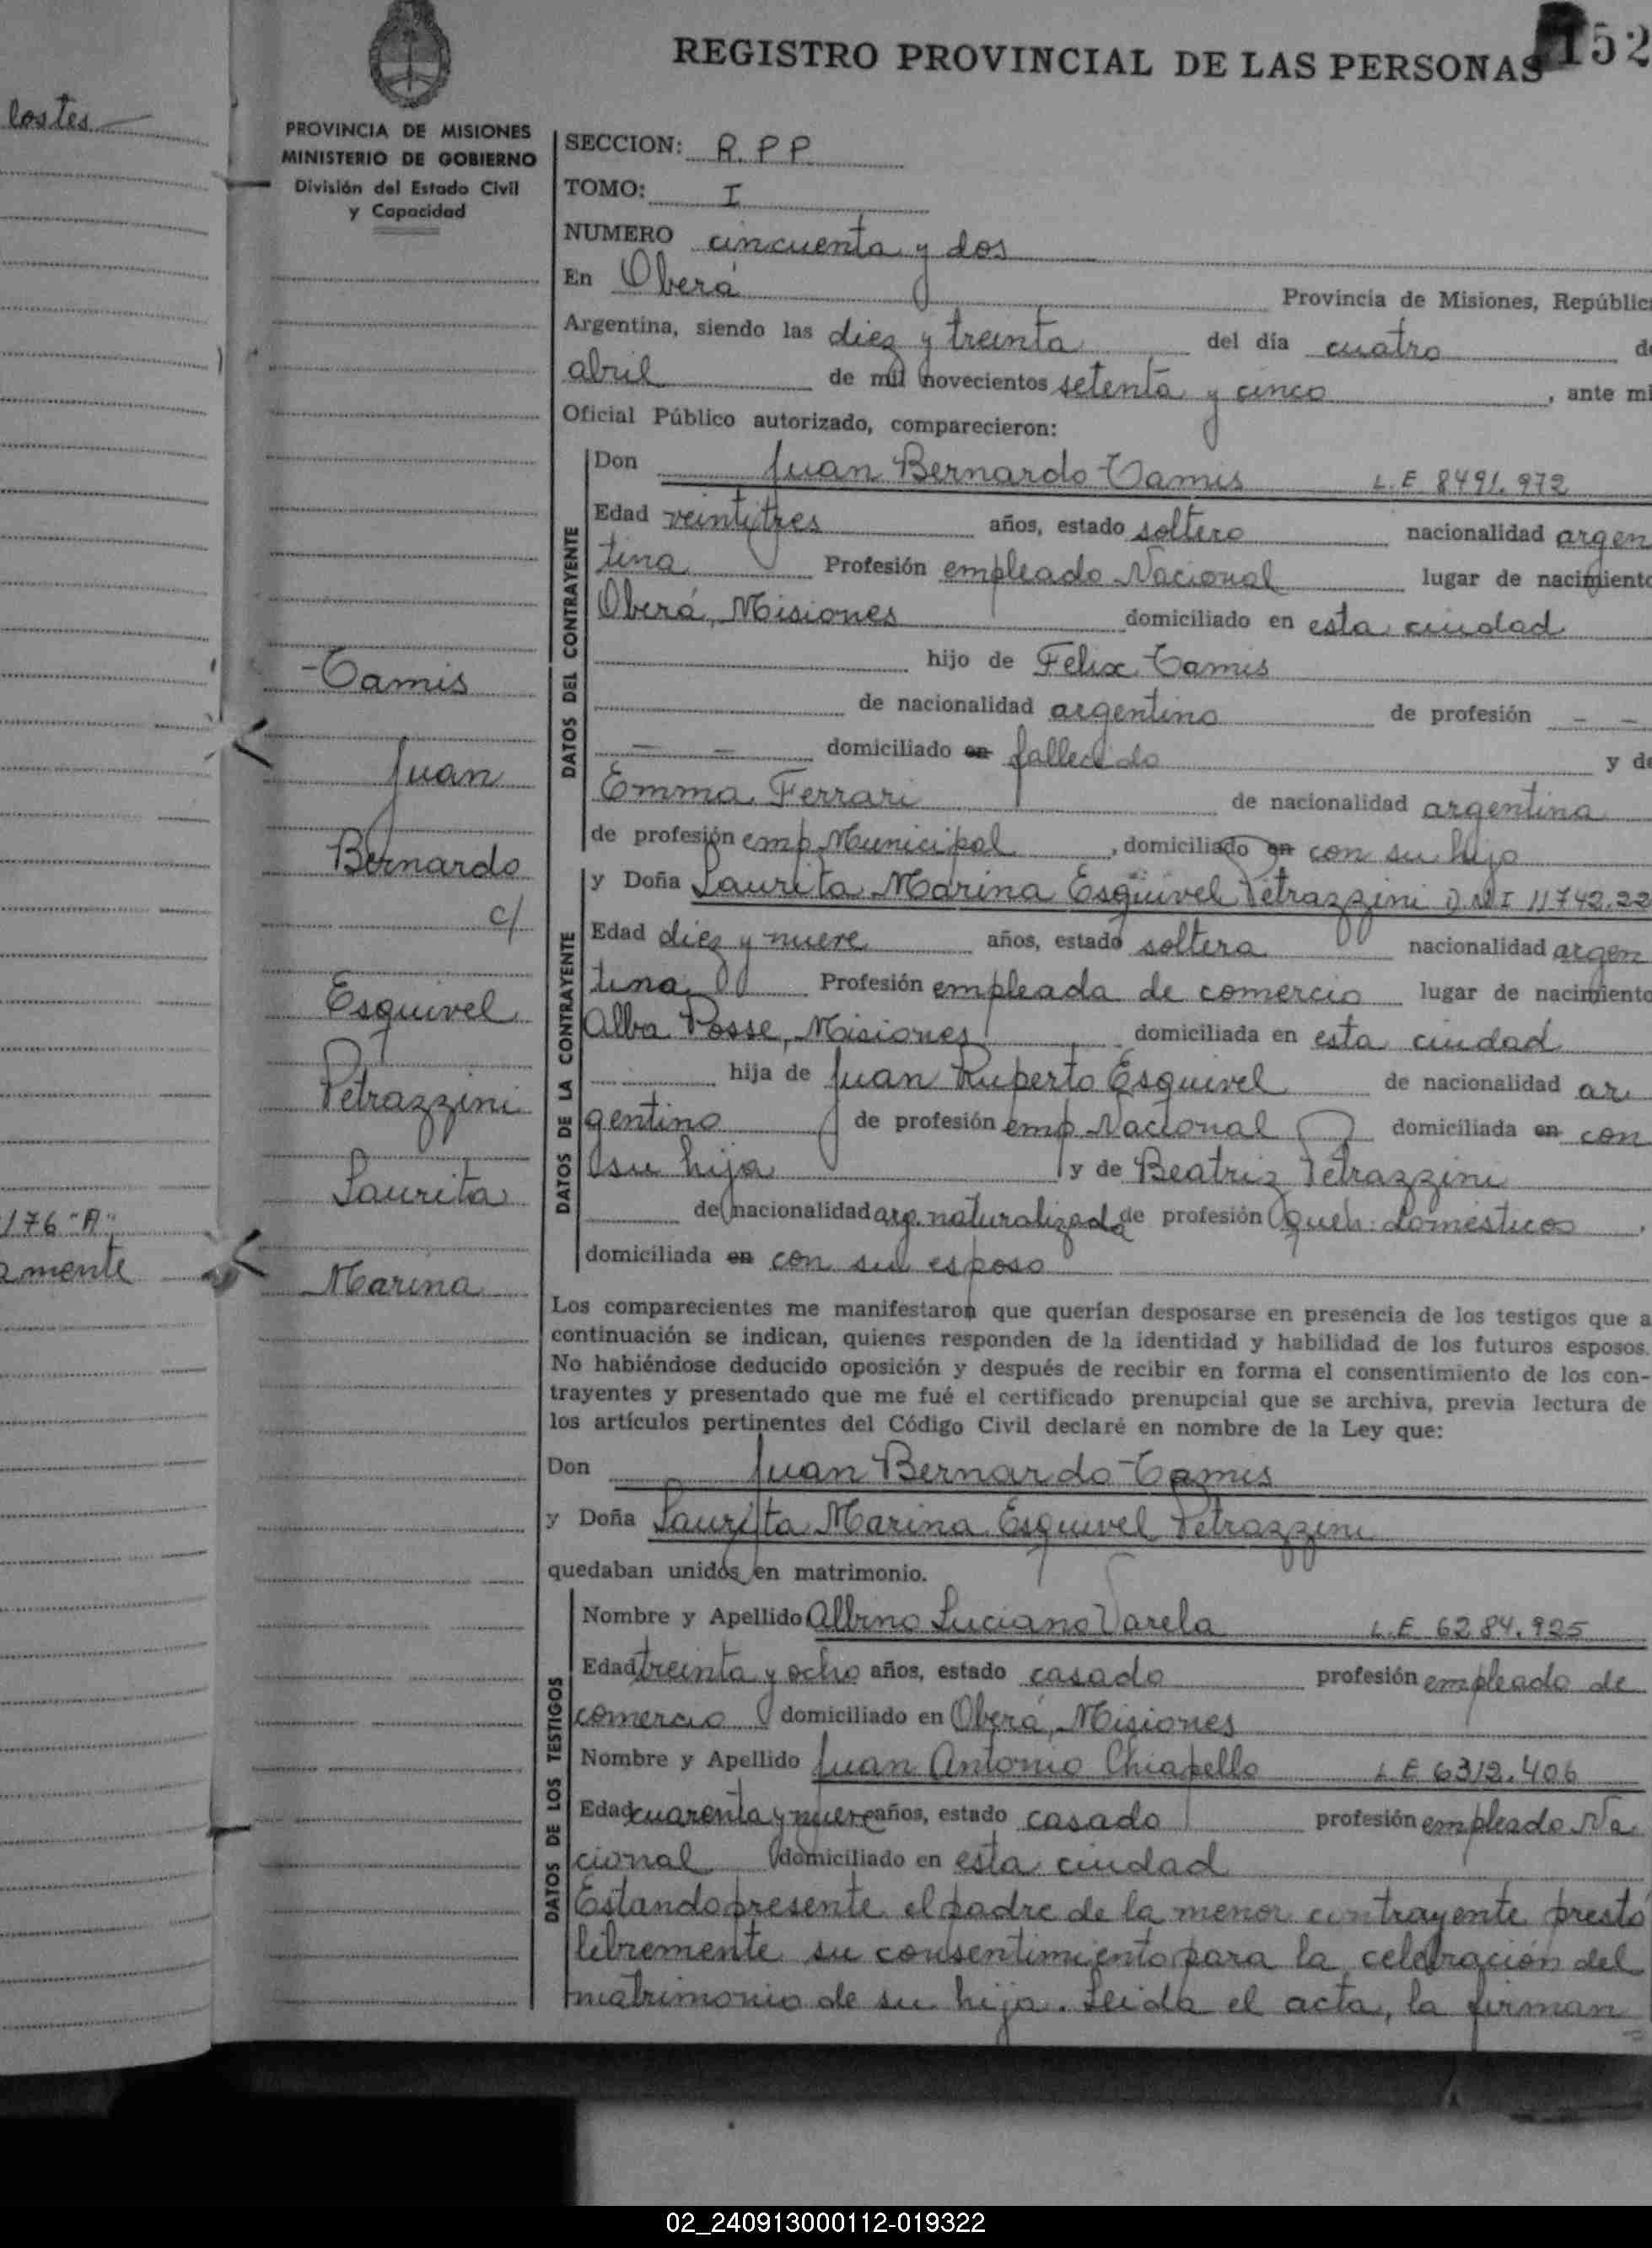 REGISTRO PROVINCIAL DE LAS PERSONAS
152
lostes
PROVINCIA DE MISIONES
MINISTERIO DE GOBIERNO
División del Estado Civil
y Capacidad
SECCION: R.P.P.
TOMO: I
NUMERO cincuenta y dos
En Oberá Provincia de Misiones, Repúblic
Argentina, siendo las diez y treinta del día cuatro d
abril de mil novecientos setenta y cinco, ante mi
Oficial Público autorizado, comparecieron:
DATOS DEL CONTRAYENTE
Don Juan Bernardo Tamis L.E 8491.972
Edad veintitres años, estado soltero nacionalidad argen
tina Profesión empleado Nacional lugar de nacimiento
Oberá, Misiones domiciliado en esta ciudad
hijo de Felix Tamis
de nacionalidad argentino de profesión - -
- - domiciliado en fallecido y de
Emma Ferrari de nacionalidad argentina
de profesión emp. Municipal, domiciliado en con su hijo
DATOS DE LA CONTRAYENTE
y Doña Laurita Marina Esquivel Petrazzini D.N.I 11742.22
Edad diez y nueve años, estado soltera nacionalidad argen
tina Profesión empleada de comercio lugar de nacimiento
Alba Posse, Misiones domiciliada en esta ciudad
hija de Juan Ruperto Esquivel de nacionalidad ar
gentino de profesión emp Nacional domiciliada en con
su hija y de Beatriz Petrazzini
de nacionalidad arg. naturalizada de profesión queh. domésticos,
domiciliada en con su esposo
Tamis
Juan
Bernardo
c/
Esquivel
Petrazzini
Laurita
Marina
176 "A"
amente
Los comparecientes me manifestaron que querían desposarse en presencia de los testigos que a
continuación se indican, quienes responden de la identidad y habilidad de los futuros esposos.
No habiéndose deducido oposición y después de recibir en forma el consentimiento de los con-
trayentes y presentado que me fué el certificado prenupcial que se archiva, previa lectura de
los artículos pertinentes del Código Civil declaré en nombre de la Ley que:
Don Juan Bernardo Tamis
y Doña Laurita Marina Esquivel Petrazzini
quedaban unidos en matrimonio.
DATOS DE LOS TESTIGOS
Nombre y Apellido Albino Luciano Varela L.E 6284.925
Edad treinta y ocho años, estado casado profesión empleado de
comercio domiciliado en Oberá, Misiones
Nombre y Apellido Juan Antonio Chiapello L.E 6312.406
Edad cuarenta y nueve años, estado casado profesión empleado Na
cional domiciliado en esta ciudad
Estando presente el padre de la menor contrayente presto
libremente su consentimiento para la celebración del
matrimonio de su hija. Leida el acta, la firman
02_240913000112-019322